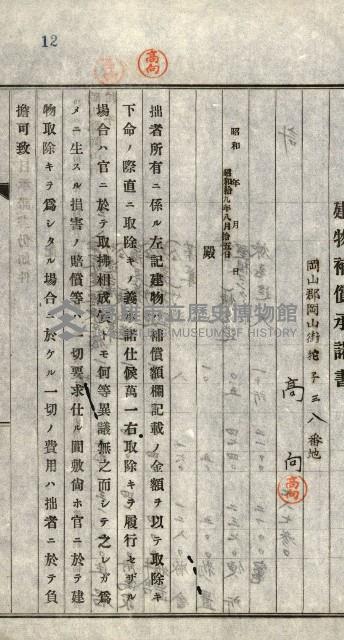 12
高向
建物補償承諾書
岡山郡岡山街 三八番地
高向
高向
昭和 年 月 日
昭和拾九年八月拾五日
殿
拙者所有ニ係ル左記建物ハ補償額欄記載ノ金額ヲ以テ取除キ
下命ノ際直ニ取除キノ義承諾仕候萬一右取除キヲ履行セザル
場合ハ官ニ於テ取拂相成候トモ何等異議無之而シテ之レガ爲
メニ生スル損害ノ賠償等ハ一切要求仕ル間敷尙ホ官ニ於テ建
物取除キヲ爲シタル場合ニ於ケル一切ノ費用ハ拙者ニ於テ負
擔可致
高雄市立歷史博物館
KAOHSIUNG MUSEUM OF HISTORY